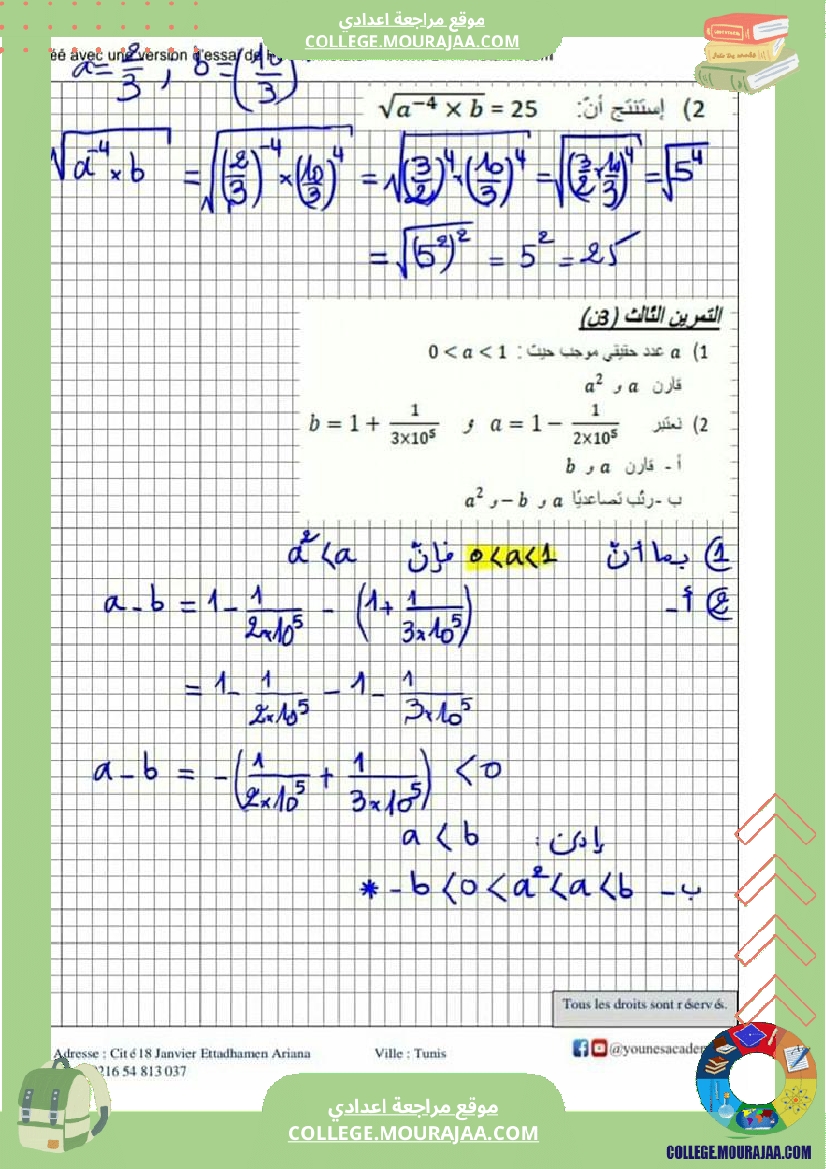 موقع مراجعة اعدادي
COLLEGE.MOURAJAA.COM
éé avec une version d'essai de
a = 2/3 , b = (10/3)
2) إستنتج أنّ: √(a⁻⁴ × b) = 25
√(a⁻⁴ × b) = √((2/3)⁻⁴ × (10/3)⁴) = √((3/2)⁴ × (10/3)⁴) = √((3/2 × 10/3)⁴) = √(5⁴)
= √((5²)²) = 5² = 25
التمرين الثالث (3ن)
1) a عدد حقيقي موجب حيث : 0 < a < 1
قارن a و a²
2) نعتبر a = 1 − 1/(2×10⁵) و b = 1 + 1/(3×10⁵)
أ - قارن a و b
ب - رتّب تصاعديّا a و b− و a²
1) بما أنّ 0 < a < 1 فإنّ a² < a
2) أ - a - b = 1 - 1/(2×10⁵) - (1 + 1/(3×10⁵))
= 1 - 1/(2×10⁵) - 1 - 1/(3×10⁵)
a - b = -(1/(2×10⁵) + 1/(3×10⁵)) < 0
إذن : a < b
ب - * - b < 0 < a² < a < b
Tous les droits sont réservés.
Adresse : Cité 18 Janvier Ettadhamen Ariana
Ville : Tunis
@younesacade
0216 54 813 037
موقع مراجعة اعدادي
COLLEGE.MOURAJAA.COM
COLLEGE.MOURAJAA.COM